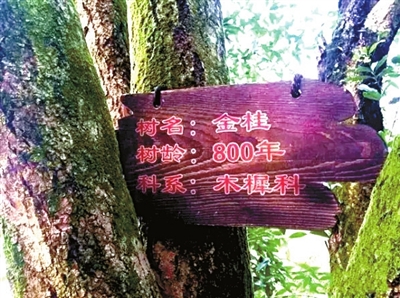 村名：金桂
树龄：800年
科系：木樨科